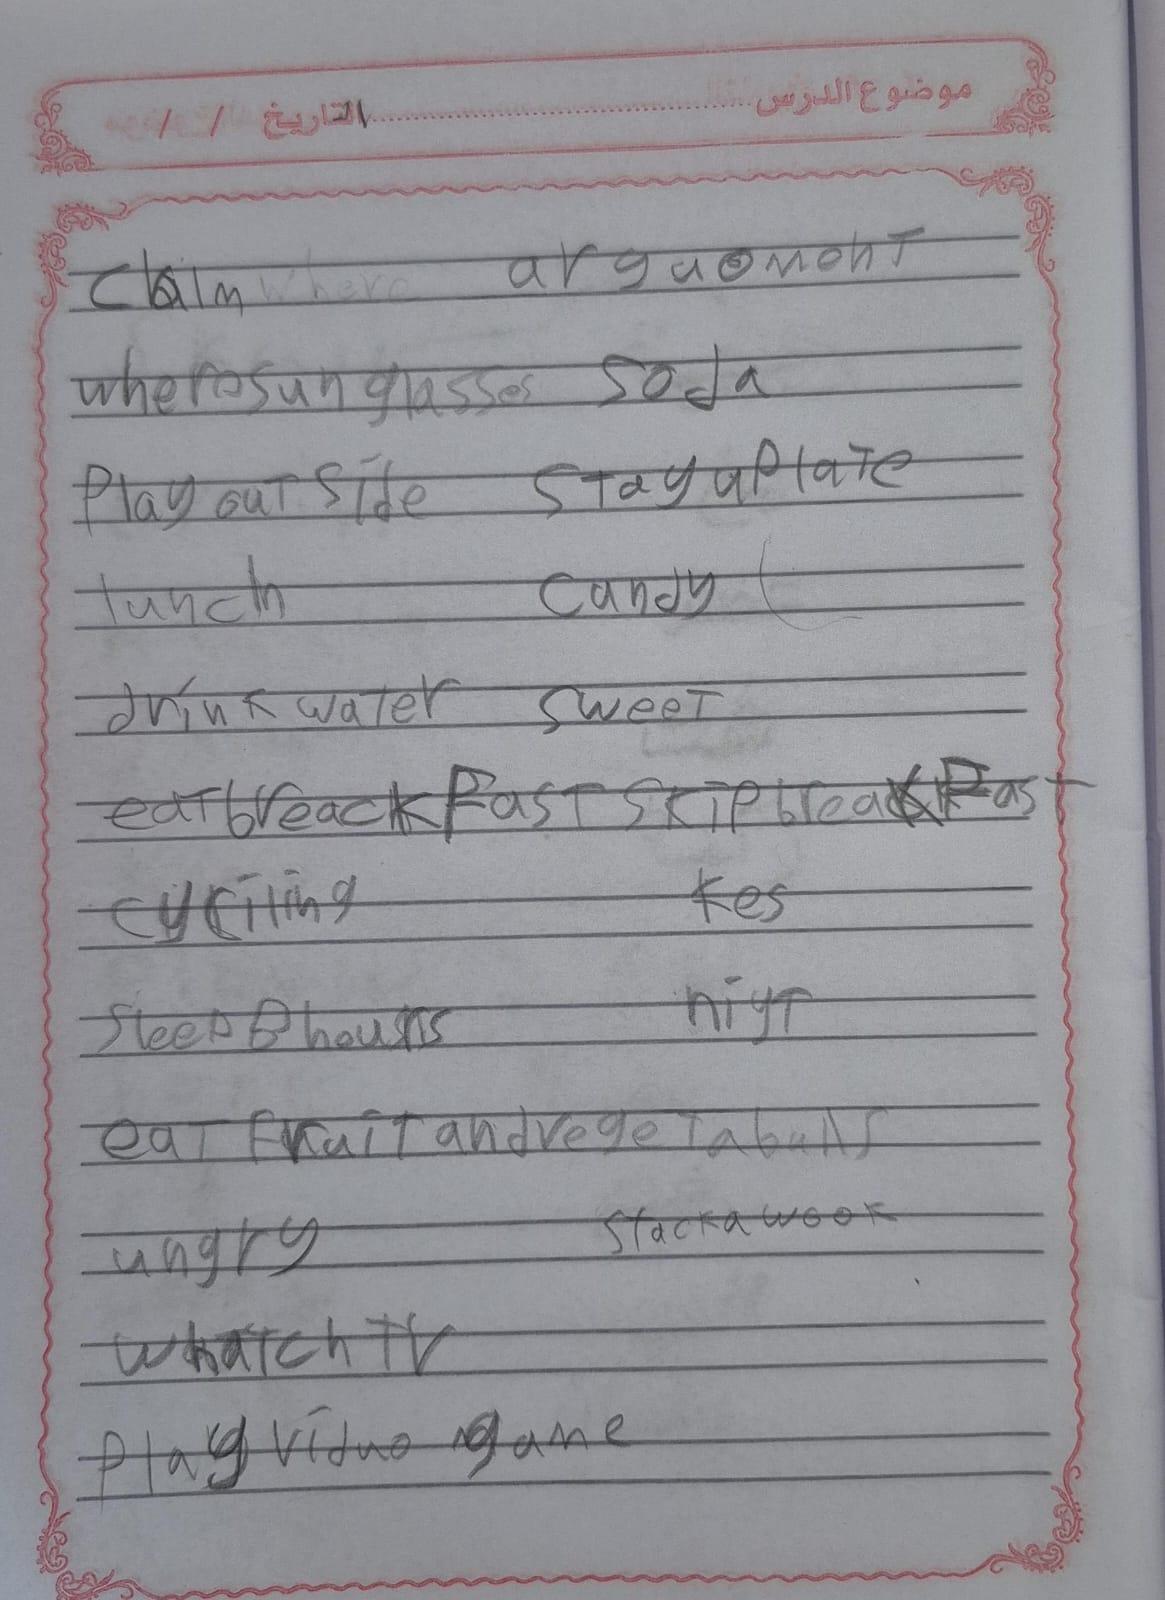 موضوع الدرس التاريخ / /
Claim arguoment
where sunglasses soda
Play out side Stay up late
lunch candy
drink water sweet
eat breackFast skip breakFast
cyciling kes
sleep 8 hours niyt
eat fruit and vege tabuls
ungry
whatch TV
Play viduo game